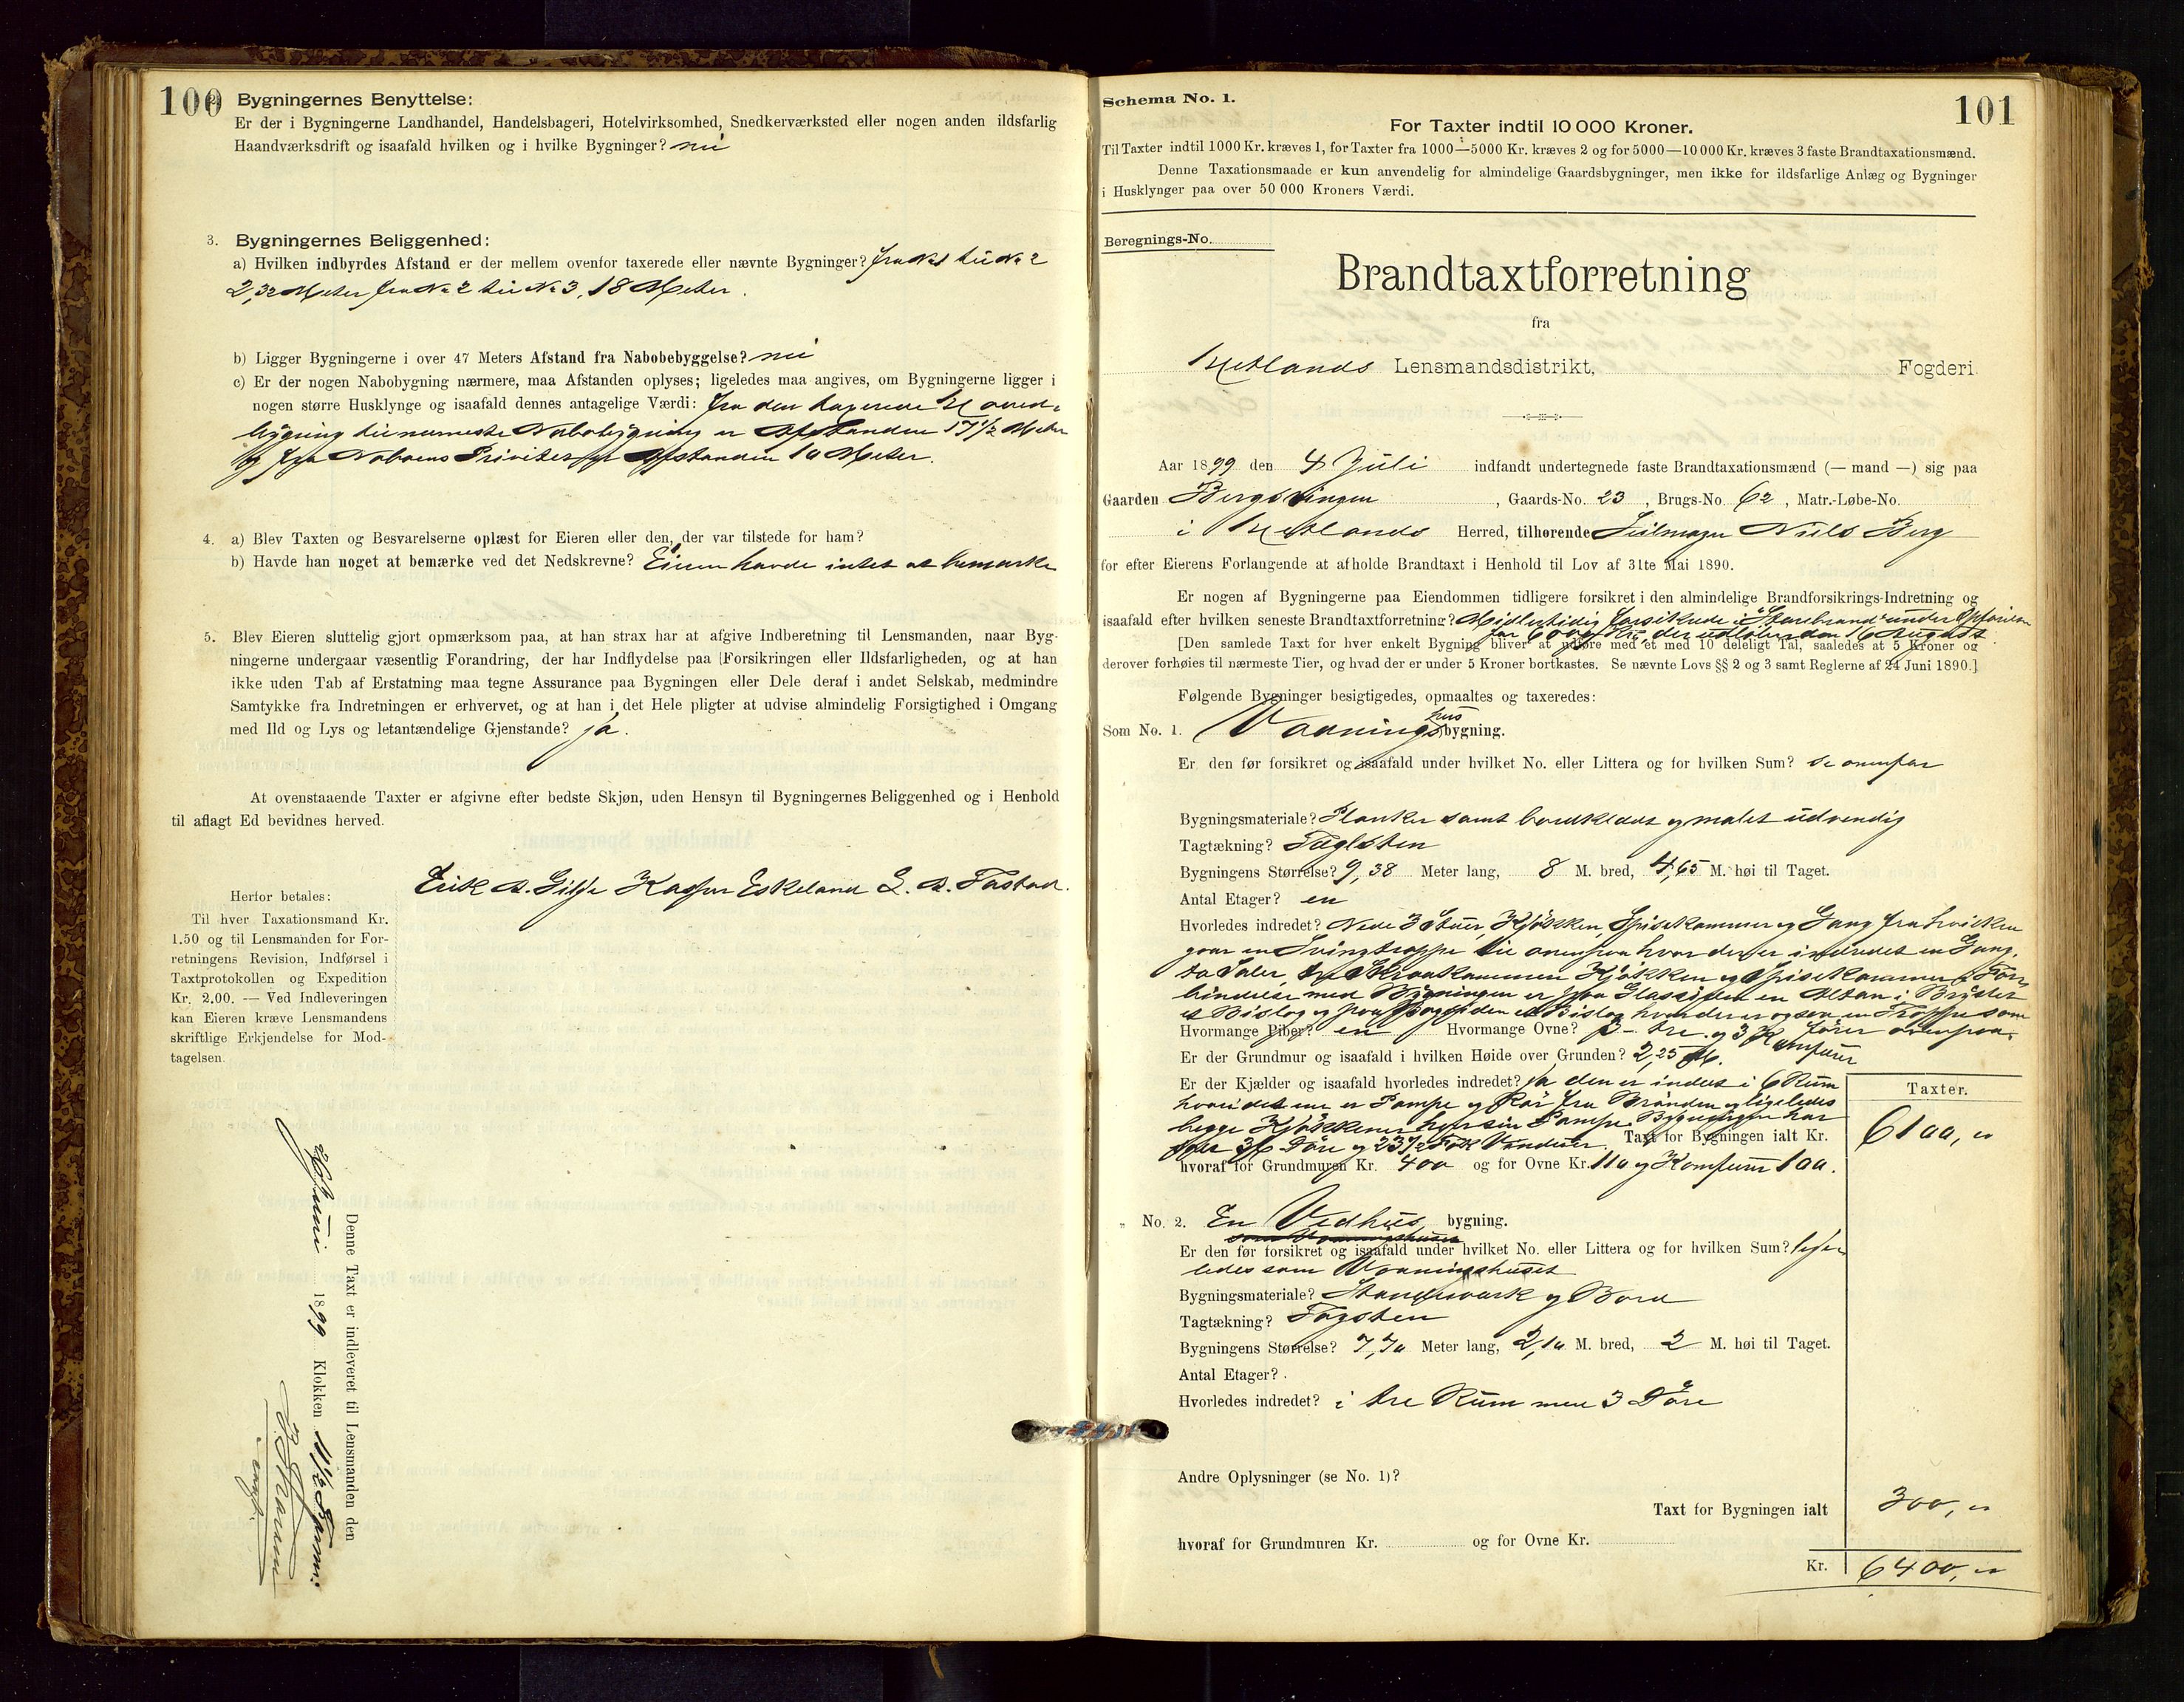 100
2. Bygningernes Benyttelse:
Er der i Bygningerne Landhandel, Handelsbageri, Hotelvirksomhed, Snedkerværksted eller nogen anden ildsfarlig
Haandværksdrift og isaafald hvilken og i hvilke Bygninger? nei
3. Bygningernes Beliggenhed:
a) Hvilken indbyrdes Afstand er der mellem ovenfor taxerede eller nævnte Bygninger? fra No 1 til No 2
2,32 Meter fra No 2 til No 3, 18 Meter.
b) Ligger Bygningerne i over 47 Meters Afstand fra Nabobebyggelse? nei
c) Er der nogen Nabobygning nærmere, maa Afstanden oplyses; ligeledes maa angives, om Bygningerne ligger i
nogen større Husklynge og isaafald dennes antagelige Værdi: fra den taxerede Hoved-
bygning til nærmeste Nabobygning er Afstanden 17 1/2 Meter
og fra Naboens Priviter er Afstanden 10 Meter.
4. a) Blev Taxten og Besvarelserne oplæst for Eieren eller den, der var tilstede for ham?
b) Havde han noget at bemærke ved det Nedskrevne? Eieren havde intet at bemærke
5. Blev Eieren sluttelig gjort opmærksom paa, at han strax har at afgive Indberetning til Lensmanden, naar Byg-
ningerne undergaar væsentlig Forandring, der har Indflydelse paa Forsikringen eller Ildsfarligheden, og at han
ikke uden Tab af Erstatning maa tegne Assurance paa Bygningen eller Dele deraf i andet Selskab, medmindre
Samtykke fra Indretningen er erhvervet, og at han i det Hele pligter at udvise almindelig Forsigtighed i Omgang
med Ild og Lys og letantændelige Gjenstande? ja.
At ovenstaaende Taxter er afgivne efter bedste Skjøn, uden Hensyn til Bygningernes Beliggenhed og i Henhold
til aflagt Ed bevidnes herved.
Erik A. Gilje Kasper Eskeland L. A. Tastad.
Herfor betales:
Til hver Taxationsmand Kr.
1.50 og til Lensmanden for For-
retningens Revision, Indførsel i
Taxtprotokollen og Expedition
Kr. 2.00. — Ved Indleveringen
kan Eieren kræve Lensmandens
skriftlige Erkjendelse for Mod-
tagelsen.
Denne Taxt er indleveret til Lensmanden den
1899 Klokken 11 1/2 Form:
Schema No. 1.
101
For Taxter indtil 10 000 Kroner.
Til Taxter indtil 1000 Kr. kræves 1, for Taxter fra 1000—5000 Kr. kræves 2 og for 5000—10 000 Kr. kræves 3 faste Brandtaxationsmænd.
Denne Taxationsmaade er kun anvendelig for almindelige Gaardsbygninger, men ikke for ildsfarlige Anlæg og Bygninger
i Husklynger paa over 50 000 Kroners Værdi.
Beregnings-No.
Brandtaxtforretning
fra
Hetlands Lensmandsdistrikt, Fogderi.
Aar 1899 den 4 Juli indfandt undertegnede faste Brandtaxationsmænd (— mand —) sig paa
Gaarden Bergsvingen, Gaards-No. 23, Brugs-No. 62, Matr.-Løbe-No.
i Hetlands Herred, tilhørende Seilmager Niels Berg
for efter Eierens Forlangende at afholde Brandtaxt i Henhold til Lov af 31te Mai 1890.
Er nogen af Bygningerne paa Eiendommen tidligere forsikret i den almindelige Brandforsikrings-Indretning og
isaafald efter hvilken seneste Brandtaxtforretning? Midlertidig forsikrede i "Storebrand" under Opførelsen
for 6000 Kr, der udløber den 16 August.
[Den samlede Taxt for hver enkelt Bygning bliver at udføre med et med 10 deleligt Tal, saaledes at 5 Kroner og
derover forhøies til nærmeste Tier, og hvad der er under 5 Kroner bortkastes. Se nævnte Lovs §§ 2 og 3 samt Reglerne af 24 Juni 1890.]
Følgende Bygninger besigtigedes, opmaaltes og taxeredes:
Som No. 1. Vaaningshus bygning.
Er den før forsikret og isaafald under hvilket No. eller Littera og for hvilken Sum? se ovenfor
Bygningsmateriale? Planker samt bordklædt og malet udvendig
Tagtækning? Taglsten
Bygningens Størrelse? 9,38 Meter lang, 8 M. bred, 4,65 M. høi til Taget.
Antal Etager? en
Hvorledes indredet? Nede 3 Stuer, Kjøkken, Spisekammer og Gang fra hvilken
gaar en Svingtrappe til ovenpaa hvor der er indredet en Gang,
to Saler, Skraakammer Kjøkken og Spisekammer i For-
bindelse med Bygningen er paa Gladsiden en Altan i Bryster
et Bislag og paa Bagsiden et Bislag hvor der er ogsaa en Trappe som
Hvormange Piber? en Hvormange Ovne? 3 – tre og 3 Komfurer fører ovenpaa.
Er der Grundmur og isaafald i hvilken Høide over Grunden? 2,25 M.
Er der Kjælder og isaafald hvorledes indredet? Ja den er inddelt i 6 Rum
hvori det ene er Pompe og Rør fra Brønden og ligeledes
begge Kjøkkener hver sin Pompe. Bygningen har
36 Døre og 23 1/2 Vinduer. Taxt for Bygningen ialt Kr.
hvoraf for Grundmuren Kr. 400 og for Ovne Kr. 110 og Komfurer 100.
Taxter.
6100, "
" No. 2. En Vedhus bygning.
Er den før forsikret og isaafald under hvilket No. eller Littera og for hvilken Sum? lige-
ledes som Vaaningshuset
Bygningsmateriale? Standerværk og Bord
Tagtækning? Tagsten
Bygningens Størrelse? 7,70 Meter lang, 2,10 M. bred, 2 M. høi til Taget.
Antal Etager?
Hvorledes indredet? i tre Rum med 3 Døre
Andre Oplysninger (se No. 1)?
Taxt for Bygningen ialt 300, "
hvoraf for Grundmuren Kr. og for Ovne Kr.
Kr. 6400, "